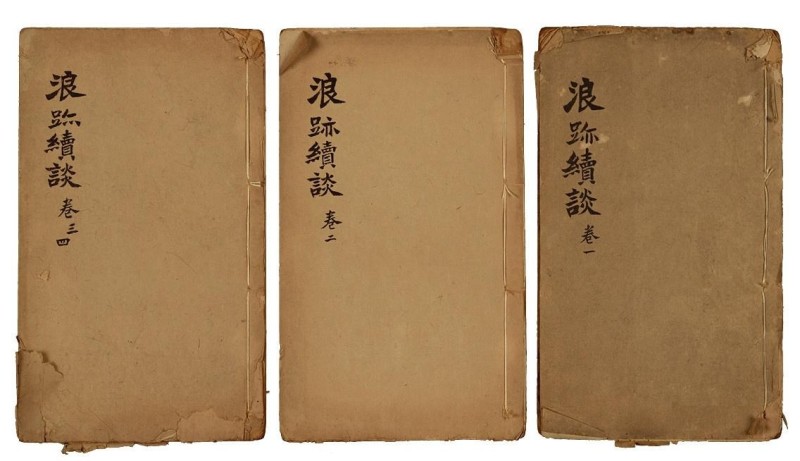 浪跡續談
卷一
浪跡續談
卷二
浪跡續談
卷三四